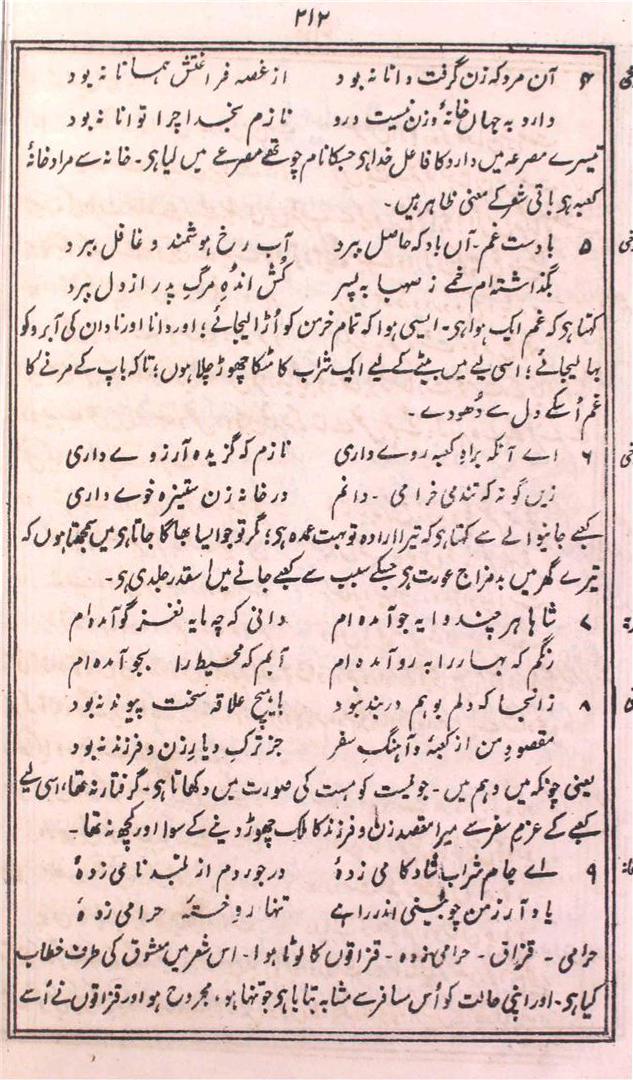 ۲۱۲
۴ آن مرد که زن گرفت دانا نہ بود از غصہ فراغتش ہمانا نہ بود
دارد بہ جہان خانۂ و زن نیست درو نازم بخدا چرا توانا نہ بود
تیسرے مصرعہ میں دارد کا فاعل خدا ہی جسکا نام چوتھے مصرعے میں لیا ہی۔ خانہ سے مراد خانۂ
کعبہ ہی باقی شعر کے معنی ظاہر ہیں۔
۵ بادست غم۔ آں باد کہ حاصل ببرد آب رخ ہوشمند و غافل ببرد
بگذاشتہ ام خمے ز صہبا بہ پسر کش اندہِ مرگِ پدر از دل ببرد
کہتا ہی کہ غم ایک ہوا ہی۔ ایسی ہوا کہ تمام خرمن کو اُڑا لیجائے؛ اور دانا اور نادان کی آبرو کو
بہا لیجائے؛ اسی لیے میں بیٹے کے لیے ایک شراب کا مٹکا چھوڑ چلا ہوں؛ تاکہ باپ کے مرنے کا
غم اُسکے دل سے دُھودے۔
۶ اے آنکہ براہِ کعبہ روے داری نازم کہ گزیدہ آرزوے داری
زیں گونہ کہ تند می خرامی۔ دانم در خانہ زن ستیزہ خوے داری
کعبے جانیوالے سے کہتا ہی کہ تیرا ارادہ تو بہت عمدہ ہی؛ مگر تو جو ایسا بھاگا جاتا ہی میں سمجھتا ہوں کہ
تیرے گھر میں بدمزاج عورت ہی جسکے سبب سے کعبے جانے میں اسقدر جلدی ہی۔
۷ شاہا ہر چند وایہ جو آمدہ ام دانی کہ چہ مایہ نغز گو آمدہ ام
رنگم کہ بہار را بہ رو آمدہ ام آبم کہ محیط را بجو آمدہ ام
۸ زانجا کہ دلم بوہم در بند نبود با ہیچ علاقہ سخت پیوند نبود
مقصودِ من از کعبہ و آہنگِ سفر جز ترکِ دیارِ زن و فرزند نبود
یعنی چونکہ میں وہم میں۔ جو نیست کو ہست کی صورت میں دکھاتا ہی۔ گرفتار نہ تھا، اسی لیے
کعبے کے عزمِ سفر سے میرا مقصد زن و فرزند کا ملک چھوڑ دینے کے سوا اور کچھ نہ تھا۔
۹ اے جام شراب شادکامی زدۂ در جور دم از بلند نامی زدۂ
یاد آر ز من چو بینی اندر راہے تنہا رو خستۂ حرامی زدۂ
حرامی۔ قزاق۔ حرامی زدہ۔ قزاقوں کا لوٹا ہوا۔ اس شعر میں معشوق کی طرف خطاب
کیا ہی۔ اور اپنی حالت کو اُس مسافر سے مشابہ بتایا ہی جو تنہا ہو، مجروح ہو اور قزاقوں نے اُسے